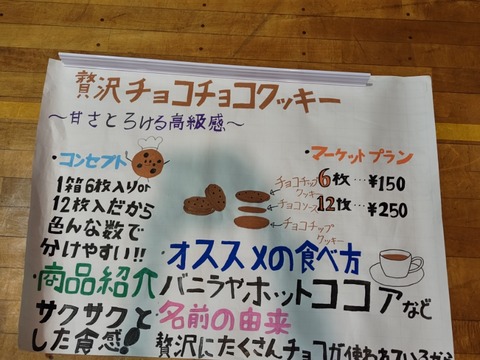 贅沢チョコチョコクッキー
～甘さとろける高級感～
・コンセプト
1箱6枚入りor
12枚入だから
色んな数で
分けやすい!!
チョコチップクッキー
チョコソース
チョコチップクッキー
・マーケットプラン
6枚…¥150
12枚…¥250
・オススメの食べ方
バニラやホットココアなど
・商品紹介
サクサクと
した食感!
・名前の由来
贅沢にたくさんチョコが使われているから